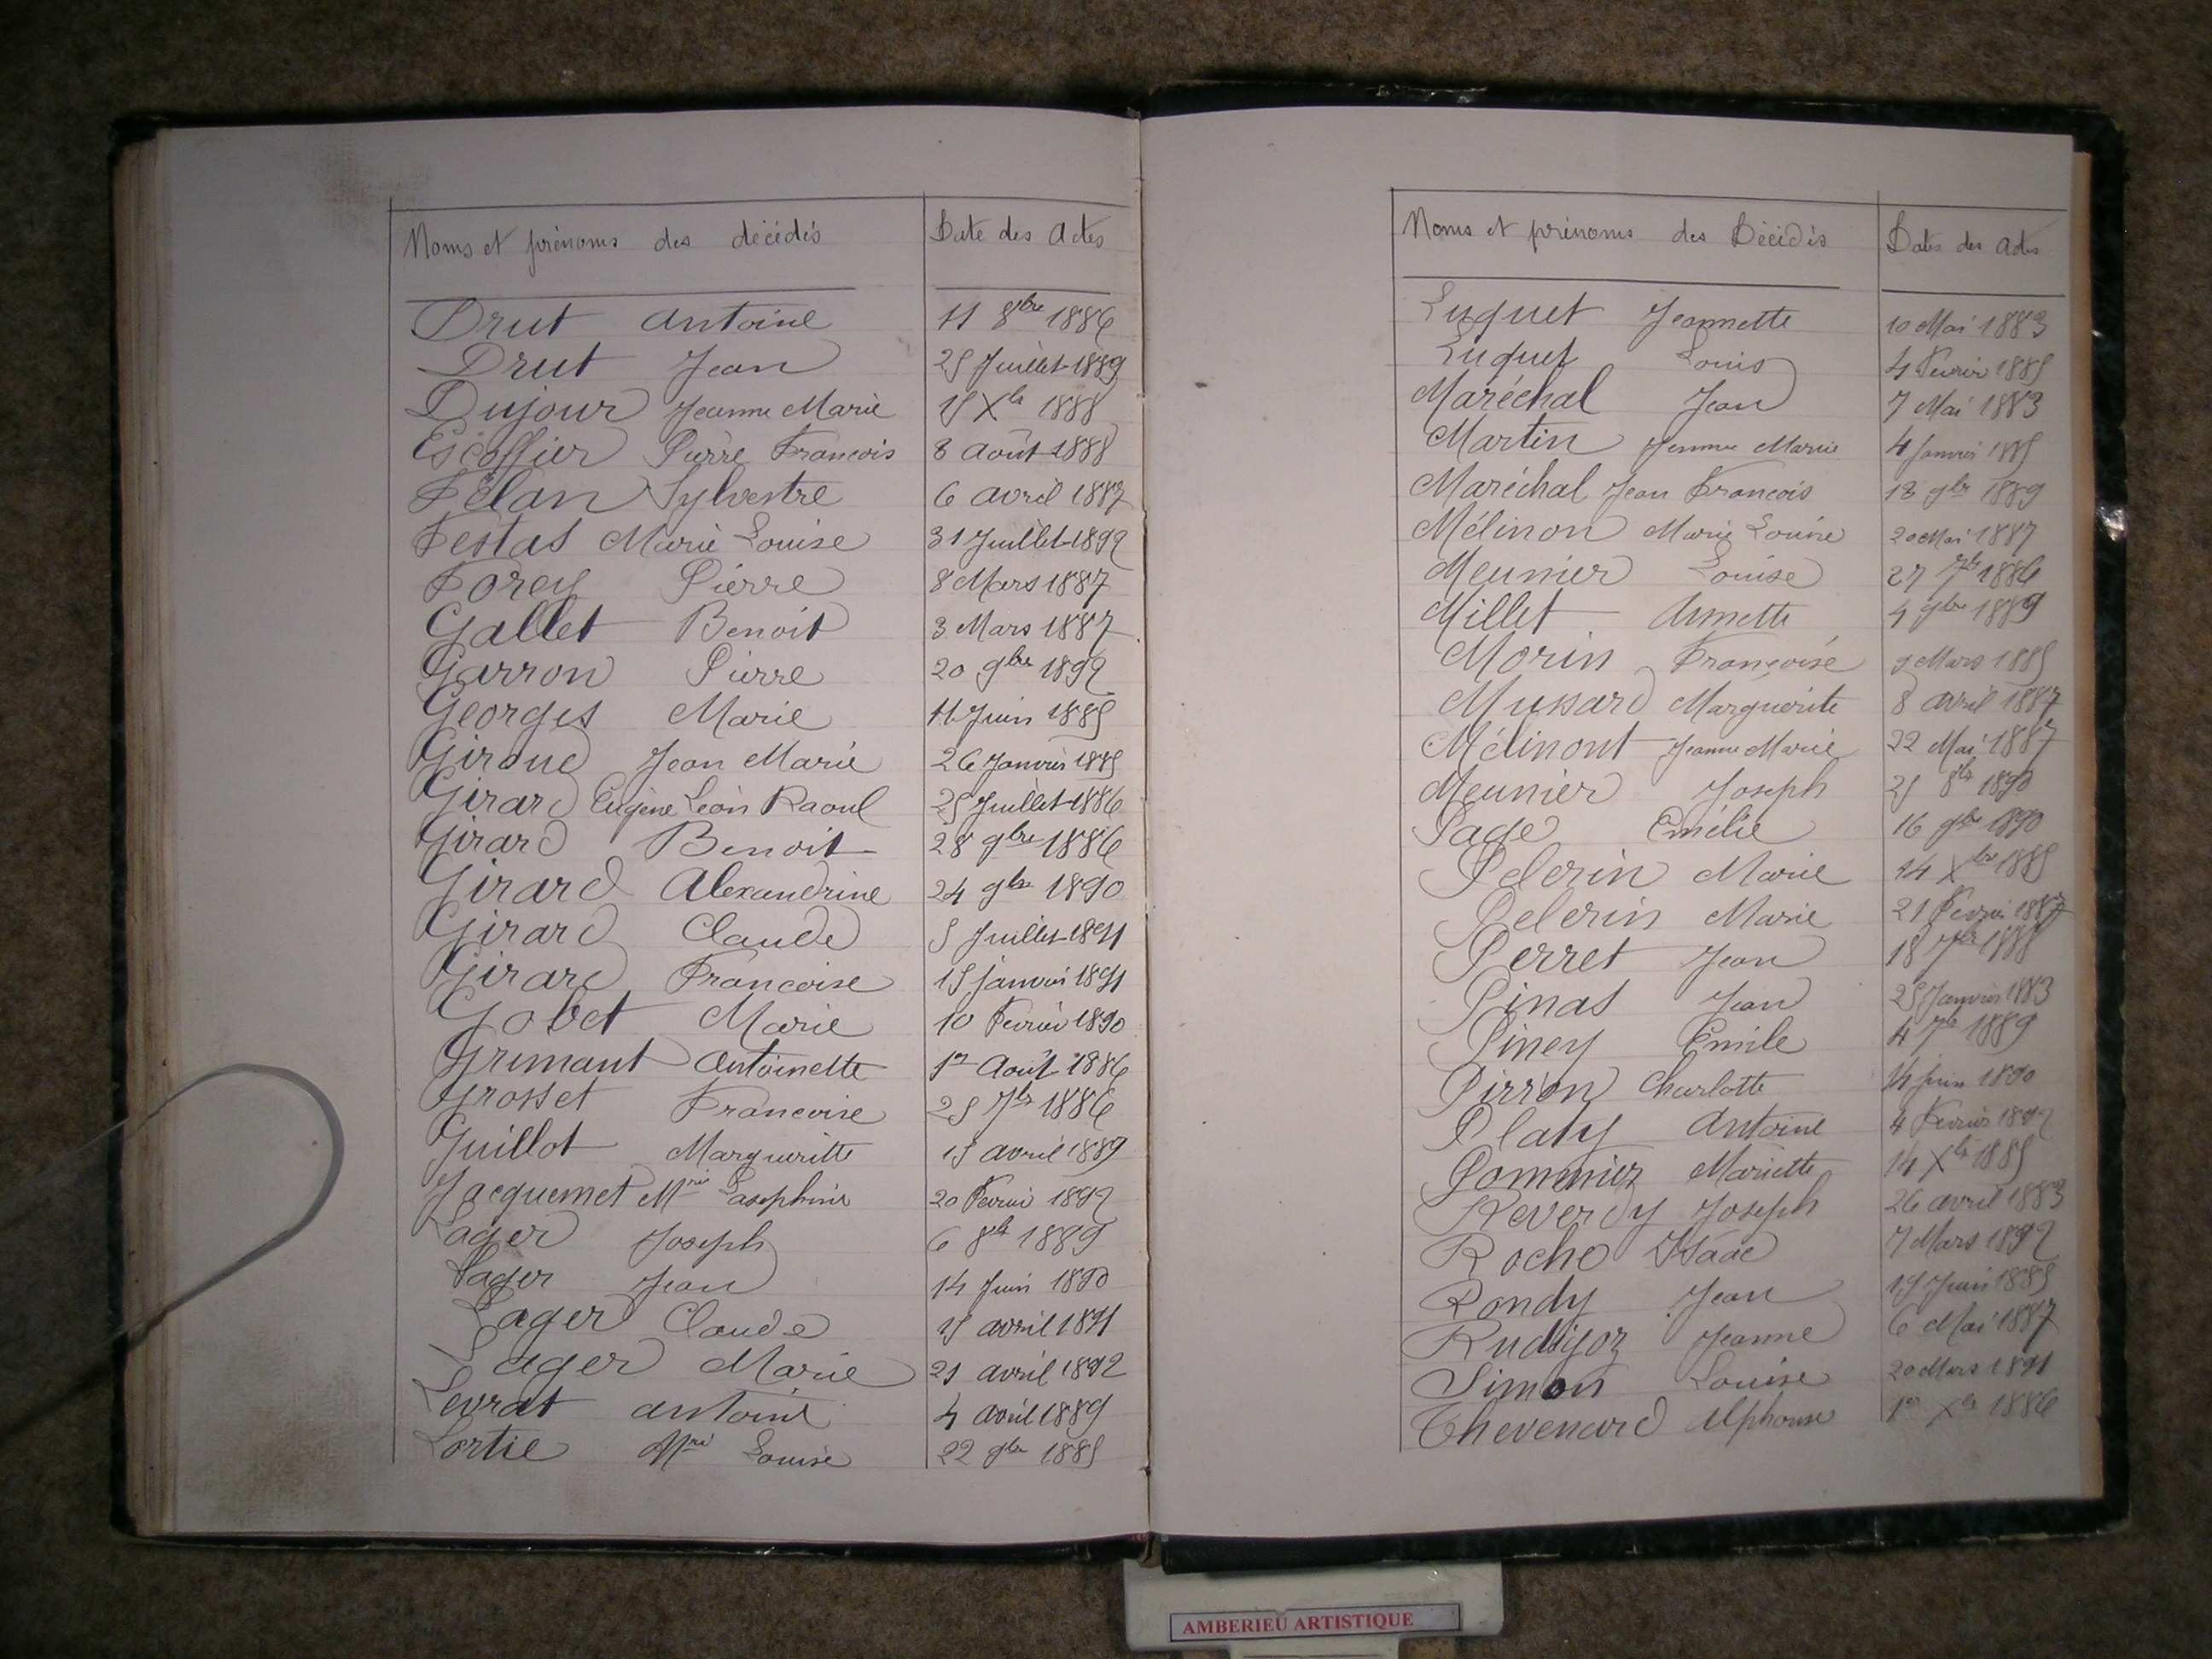 Noms et prénoms des décédés Date des Actes
Drut Antoine 11 8bre 1886
Drut Jean 25 Juillet 1889
Dujour Jeanne Marie 15 Xbre 1888
Escoffier Pierre François 8 Août 1885
Félan Sylvestre 6 avril 1887
Festas Marie Louise 31 Juillet 1892
Forey Pierre 8 Mars 1887
Gallet Benoit 3 Mars 1887
Garron Pierre 20 9bre 1892
Georges Marie 11 Juin 1885
Giroud Jean Marie 26 Janvier 1885
Girard Eugène Léon Raoul 25 Juillet 1886
Girard Benoit 28 9bre 1886
Girard Alexandrine 24 9bre 1890
Girard Claude 5 Juillet 1891
Girard Francoise 15 janvier 1891
Gobet Marie 10 Février 1890
Grimant Antoinette 1er Août 1886
Grosset Francoise 25 7bre 1886
Guillot Margueritte 15 avril 1889
Jacquemet Mrie Josephine 20 Février 1892
Lager Joseph 6 8bre 1889
Lager Jean 14 Juin 1890
Lager Claude 15 avril 1891
Lager Marie 21 avril 1892
Levrat Antoine 4 avril 1889
Lortie Mrie Louise 22 9bre 1885
Noms et prénoms des Décédés Dates des Actes
Luquet Jeannette 10 Mai 1883
Luquet Louis 4 Février 1885
Maréchal Jean 7 Mai 1883
Martin Jeanne Marie 4 Janvier 1885
Maréchal Jean François 18 9bre 1889
Mélinon Marie Louise 20 Mai 1887
Meunier Louise 27 7bre 1886
Millet Annette 4 9bre 1889
Morin Françoise 9 Mars 1885
Mussard Marguerite 8 avril 1887
Mélinont Jeanne Marie 22 Mai 1887
Meunier Joseph 25 8bre 1890
Page Emélie 16 9bre 1890
Pelerin Marie 14 Xbre 1885
Pelerin Marie 21 Février 1887
Perret Jean 18 7bre 1888
Pinas Jean 25 Janvier 1883
Piney Emile 4 7bre 1889
Pirron Charlotte 14 juin 1890
Platy Antoine 4 Février 1892
Pommier Mariette 14 Xbre 1885
Reverdy Joseph 26 avril 1883
Roche Isaac 7 Mars 1892
Rondy Jean 19 Juin 1885
Rudigoz Jeanne 6 Mai 1887
Simon Louise 20 Mars 1891
Thevenard Alphonse 1er Xbre 1886
AMBERIEU ARTISTIQUE